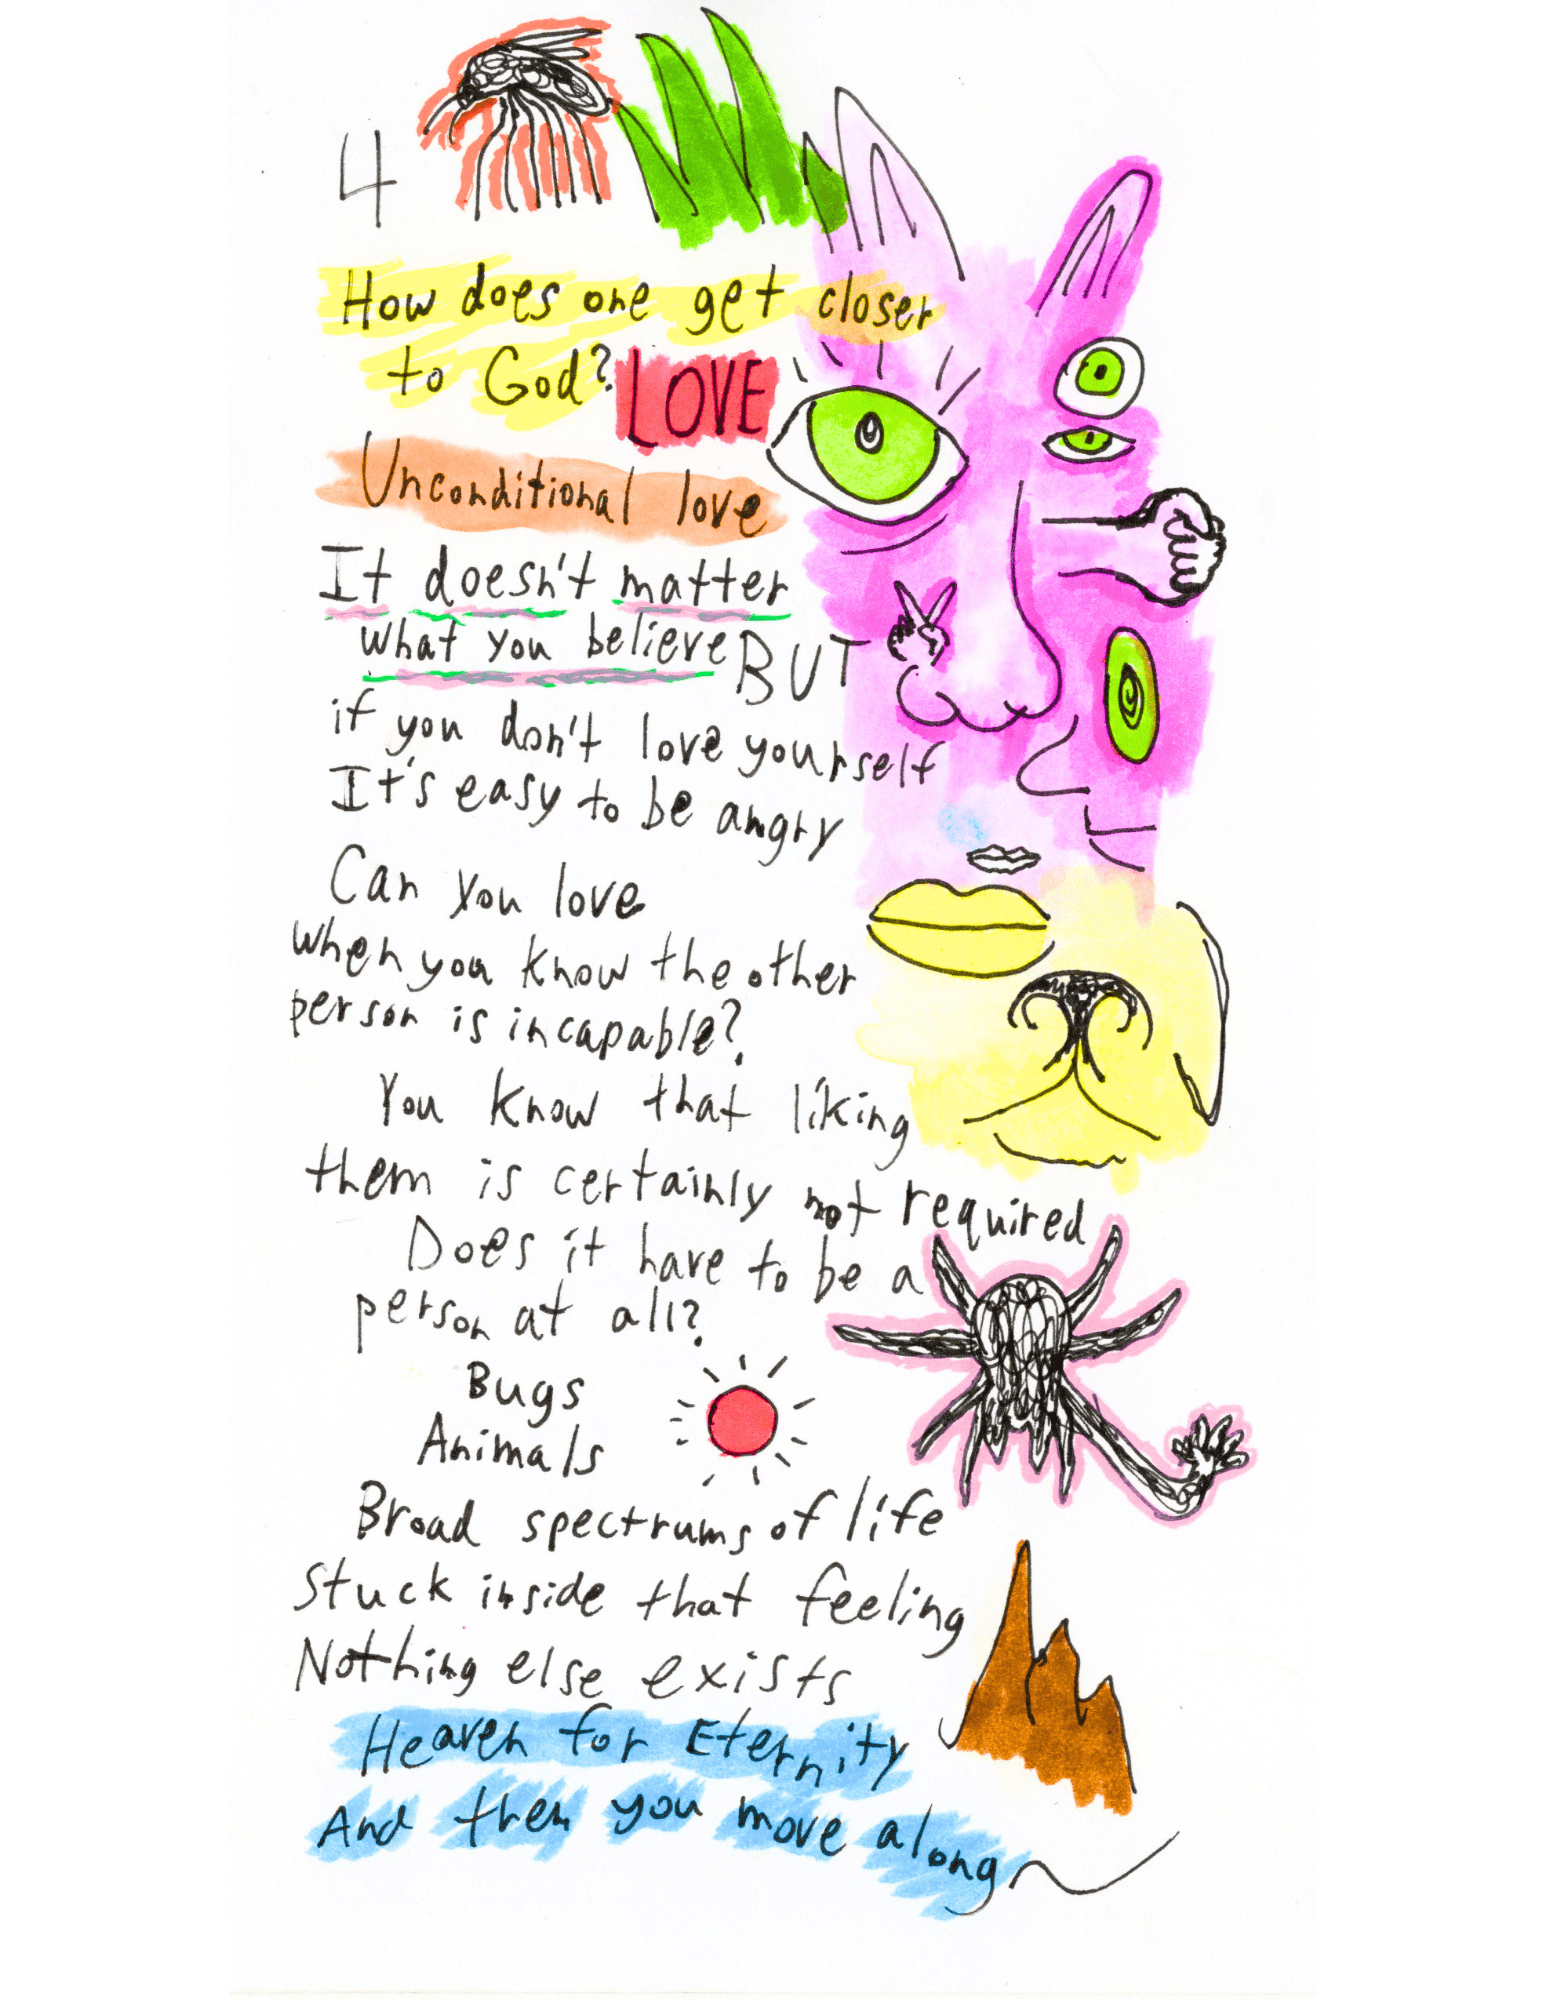 4
How does one get closer
to God? LOVE
Unconditional love
It doesn't matter
what you believe BUT
if you don't love yourself
It's easy to be angry
Can you love
when you know the other
person is incapable?
You know that liking
them is certainly not required
Does it have to be a
person at all?
Bugs
Animals
Broad spectrums of life
Stuck inside that feeling
Nothing else exists
Heaven for Eternity
And then you move along